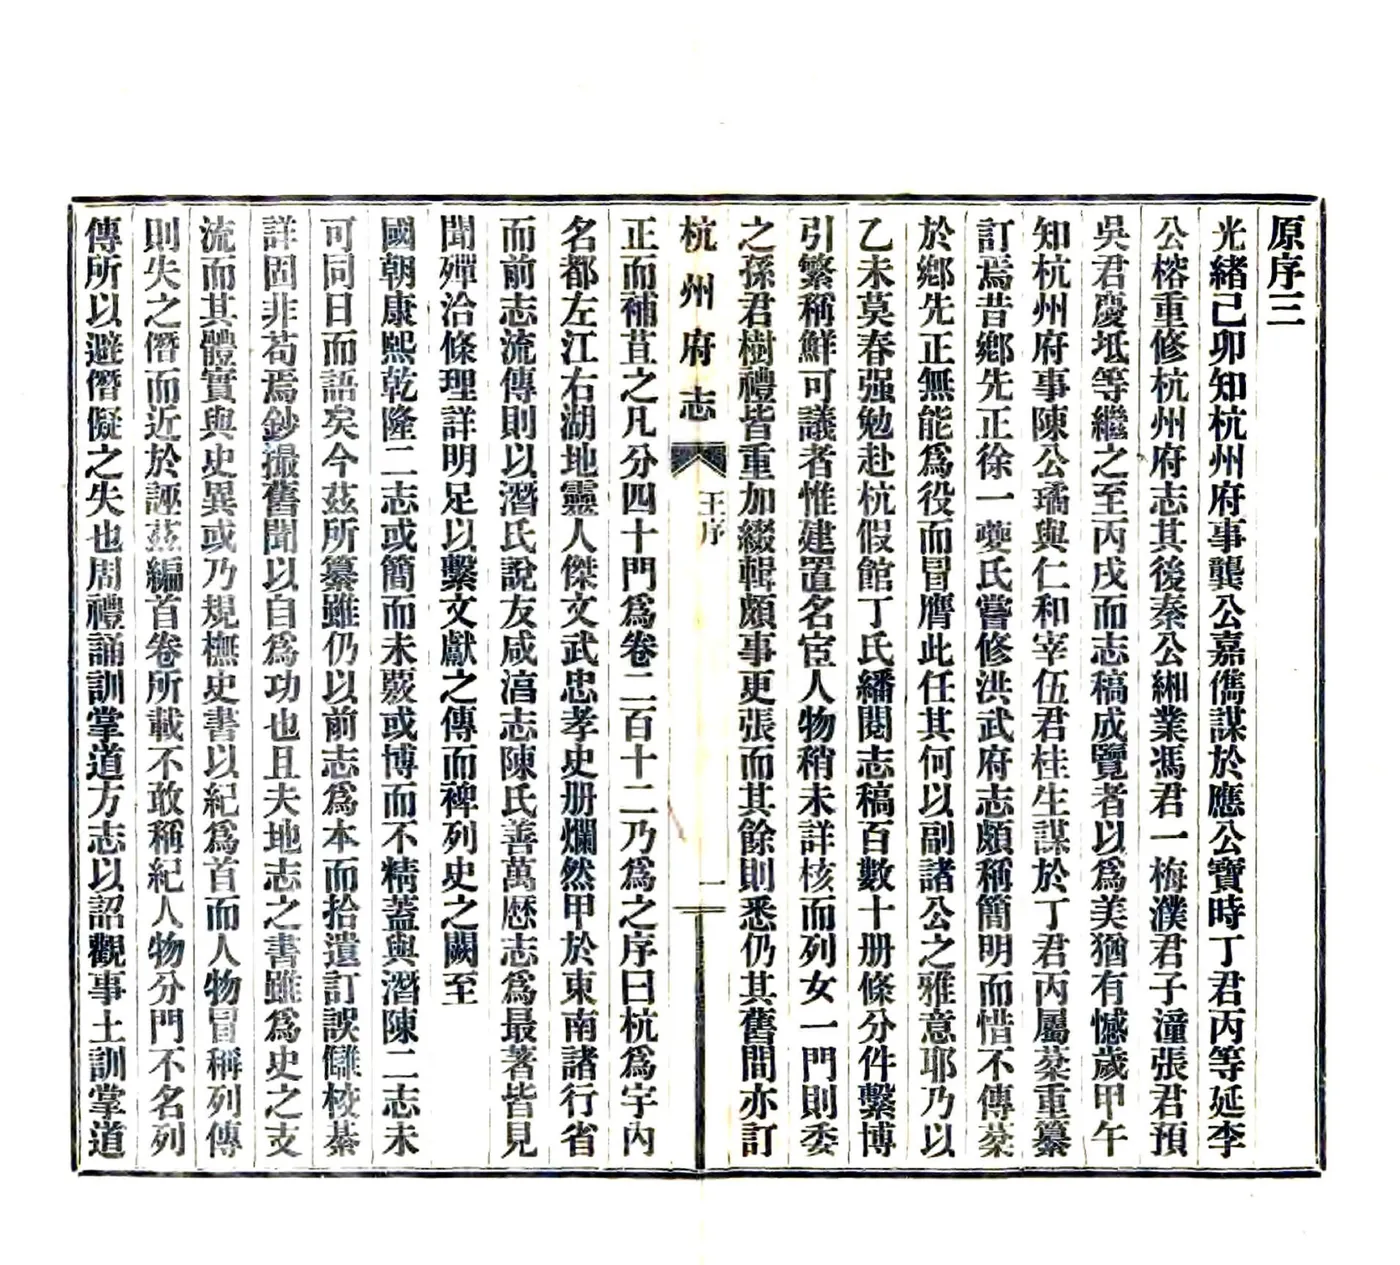 原序三
光緒己卯知杭州府事龔公嘉儁謀於應公寶時丁君丙等延李
公榕重修杭州府志其後秦公緗業馮君一梅濮君子潼張君預
吳君慶坻等繼之至丙戌而志稿成覽者以爲美猶有憾歲甲午
知杭州府事陳公璚與仁和宰伍君桂生謀於丁君丙屬棻重纂
訂焉昔鄉先正徐一夔氏嘗修洪武府志頗稱簡明而惜不傳棻
於鄉先正無能爲役而冒膺此任其何以副諸公之雅意耶乃以
乙未莫春强勉赴杭假館丁氏繙閱志稿百數十册條分件繫博
引繁稱鮮可議者惟建置名宦人物稍未詳核而列女一門則委
之孫君樹禮皆重加綴輯頗事更張而其餘則悉仍其舊間亦訂
杭州府志
王序
一
正而補苴之凡分四十門爲卷二百十二乃爲之序曰杭爲宇內
名都左江右湖地靈人傑文武忠孝史册爛然甲於東南諸行省
而前志流傳則以潛氏說友咸淳志陳氏善萬厯志爲最著皆見
聞殫洽條理詳明足以繫文獻之傳而裨列史之闕至
國朝康熙乾隆二志或簡而未覈或博而不精蓋與潛陳二志未
可同日而語矣今茲所纂雖仍以前志爲本而拾遺訂誤讎校綦
詳固非苟焉鈔撮舊聞以自爲功也且夫地志之書雖爲史之支
流而其體實與史異或乃規橅史書以紀爲首而人物冒稱列傳
則失之僭而近於誣茲編首卷所載不敢稱紀人物分門不名列
傳所以避僭儗之失也周禮誦訓掌道方志以詔觀事土訓掌道